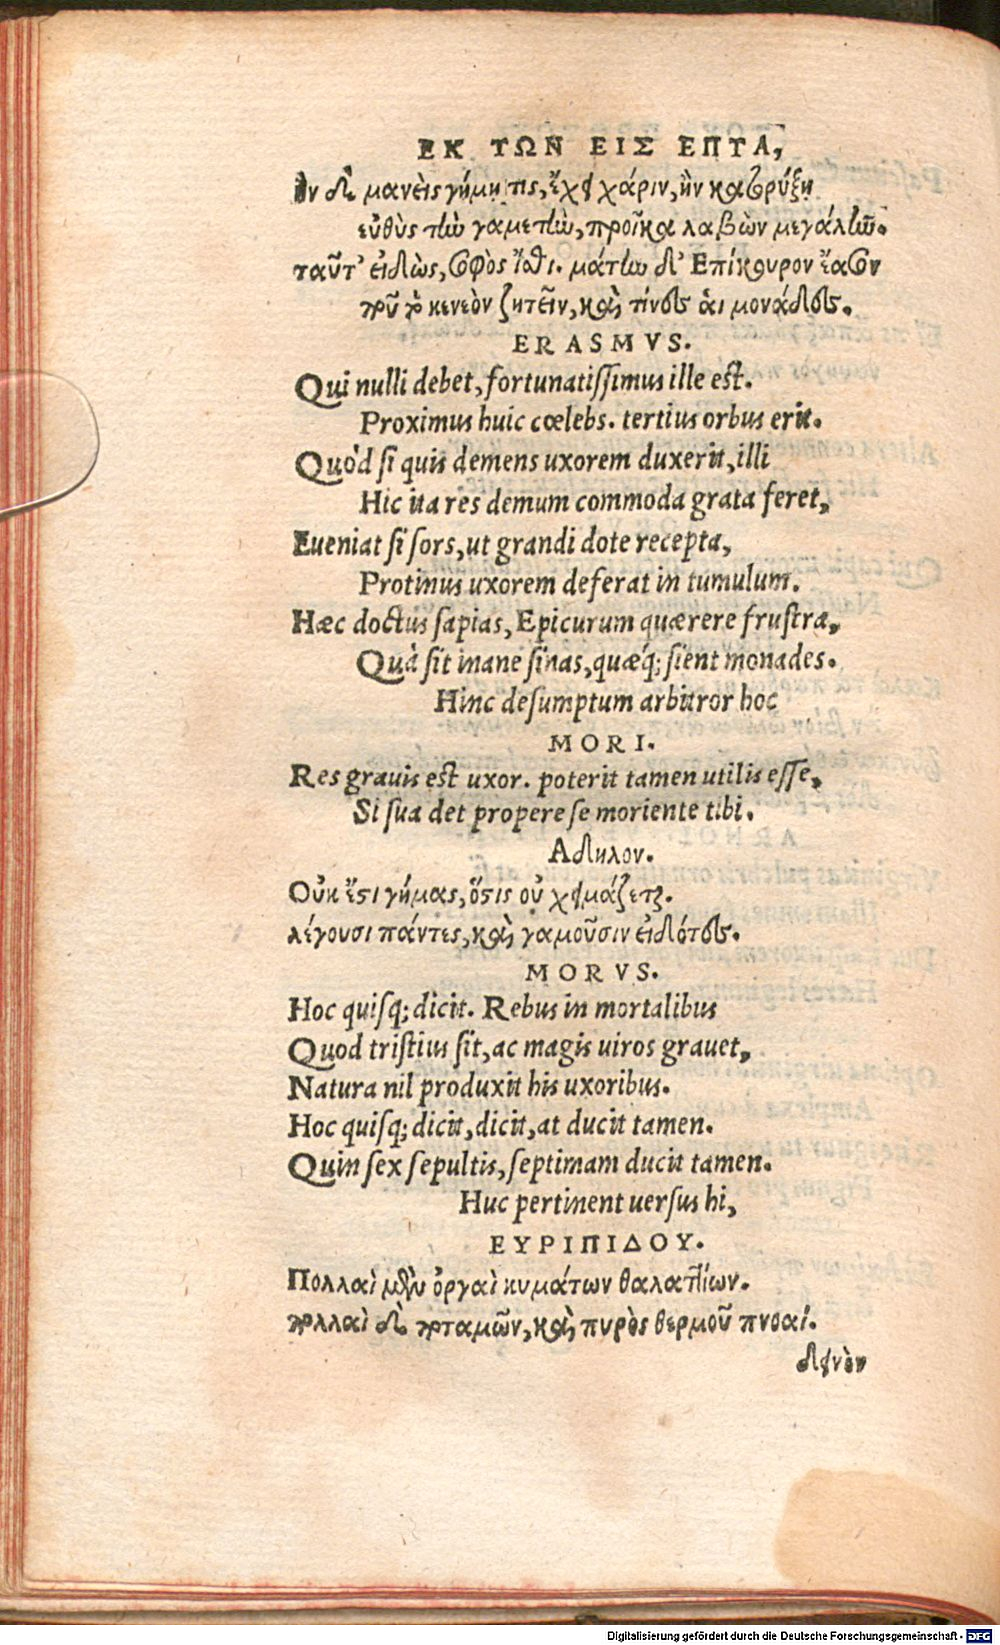 ΕΚ ΤΩΝ ΕΙΣ ΕΠΤΑ,
Ην δὲ μανεὶς γήμῃ τις, ἔχει χάριν, ἢν κατορύξῃ
εὐθὺς τὴν γαμετὴν, προῖκα λαβὼν μεγάλην.
ταῦτ' εἰδὼς, σοφὸς ἴσθι. μάτην δ' Επίκουρον ἔασον
ποῦ τὸ κενεὸν ζητεῖν, καὶ τίνες αἱ μονάδες.
ERASMVS.
Qui nulli debet, fortunatissimus ille est.
Proximus huic cœlebs. tertius orbus erit.
Quòd si quis demens uxorem duxerit, illi
Hic ita res demum commoda grata feret,
Eueniat si sors, ut grandi dote recepta,
Protinus uxorem deferat in tumulum.
Hæc doctus sapias, Epicurum quærere frustra,
Quà sit inane sinas, quæq; sient monades.
Hinc desumptum arbitror hoc
MORI.
Res grauis est uxor. poterit tamen utilis esse,
Si sua det propere se moriente tibi.
Αδηλον.
Οὐκ ἔστι γήμας, ὅστις οὐ χειμάζεται.
λέγουσι πάντες, καὶ γαμοῦσιν εἰδότες.
MORVS.
Hoc quisq; dicit. Rebus in mortalibus
Quod tristius sit, ac magis uiros grauet,
Natura nil produxit his uxoribus.
Hoc quisq; dicit, dicit, at ducit tamen.
Quin sex sepultis, septimam ducit tamen.
Huc pertinent uersus hi,
ΕΥΡΙΠΙΔΟΥ.
Πολλαὶ μὲν ὀργαὶ κυμάτων θαλαττίων.
πολλαὶ δὲ ποταμῶν, καὶ πυρὸς θερμοῦ πνοαί.
δεινὸν
Digitalisierung gefördert durch die Deutsche Forschungsgemeinschaft - DFG